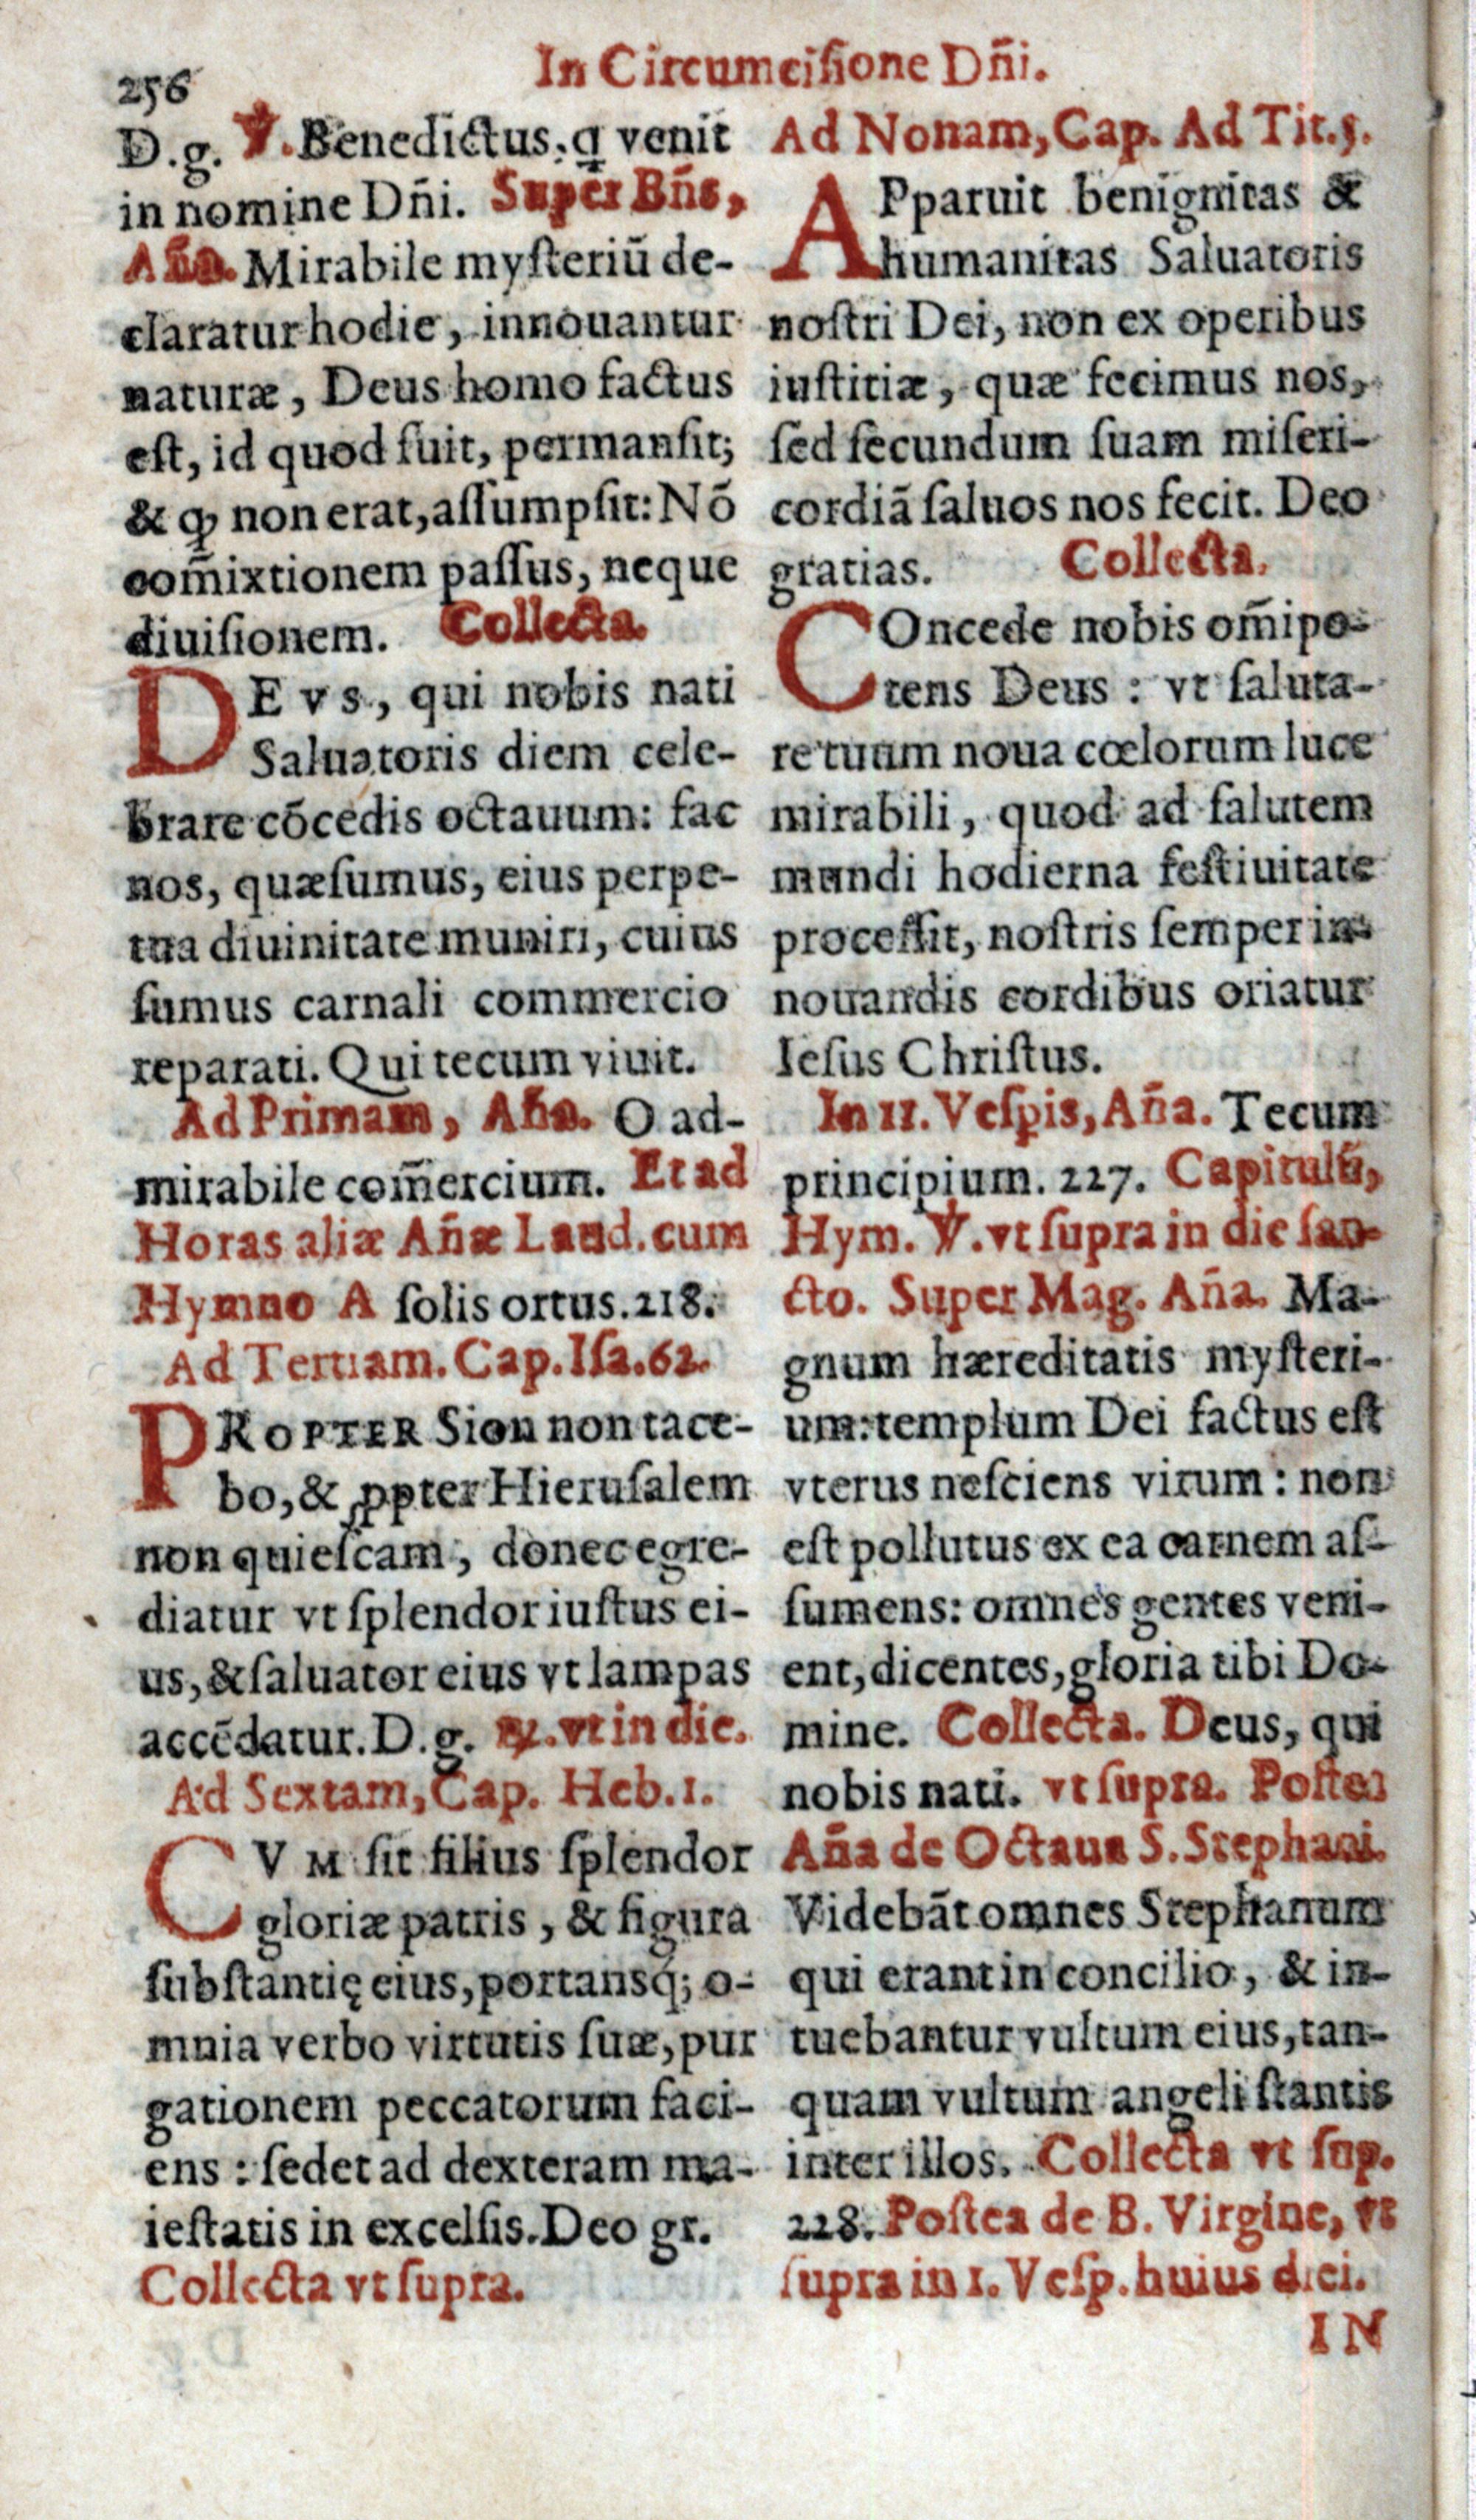 256
In Circumcisione Dñi.
D.g. ℣. Benedictus, q venit
in nomine Dñi. Super Bñs,
Aña. Mirabile mysteriū de-
claratur hodie, innouantur
naturæ, Deus homo factus
est, id quod fuit, permansit;
& ꝙ non erat, assumpsit: Nō
com̃ixtionem passus, neque
diuisionem. Collecta.
DEVS, qui nobis nati
Saluatoris diem cele-
brare cōcedis octauum: fac
nos, quæsumus, eius perpe-
tua diuinitate muniri, cuius
sumus carnali commercio
reparati. Qui tecum viuit.
Ad Primam, Aña. O ad-
mirabile com̃ercium. Et ad
Horas aliæ Añæ Laud. cum
Hymno A solis ortus. 218.
Ad Tertiam. Cap. Isa. 62.
PROPTER Sion non tace-
bo, & ꝓpter Hierusalem
non quiescam, donec egre-
diatur vt splendor iustus ei-
us, & saluator eius vt lampas
accēdatur. D.g. ℟. vt in die.
Ad Sextam, Cap. Heb. 1.
CVM sit filius splendor
gloriæ patris, & figura
substantię eius, portansq́; o-
mnia verbo virtutis suæ, pur
gationem peccatorum faci-
ens: sedet ad dexteram ma-
iestatis in excelsis. Deo gr.
Collecta vt supra.
Ad Nonam, Cap. Ad Tit. 3.
APparuit benignitas &
humanitas Saluatoris
nostri Dei, non ex operibus
iustitiæ, quæ fecimus nos,
sed secundum suam miseri-
cordiā saluos nos fecit. Deo
gratias. Collecta.
COncede nobis om̃ipo-
tens Deus: vt saluta-
re tuum noua cœlorum luce
mirabili, quod ad salutem
mundi hodierna festiuitate
processit, nostris semper in-
nouandis cordibus oriatur
Iesus Christus.
In II. Vesꝑis, Aña. Tecum
principium. 227. Capitulū,
Hym. ℣. vt supra in die san-
cto. Super Mag. Aña. Ma-
gnum hæreditatis mysteri-
um: templum Dei factus est
vterus nesciens virum: non
est pollutus ex ea carnem as-
sumens: omnes gentes veni-
ent, dicentes, gloria tibi Do-
mine. Collecta. Deus, qui
nobis nati. vt supra. Postea
Aña de Octaua S. Stephani.
Videbāt omnes Stephanum
qui erant in concilio, & in-
tuebantur vultum eius, tan-
quam vultum angeli stantis
inter illos. Collecta vt sup.
228. Postea de B. Virgine, vt
supra in 1. Vesp. huius diei.
IN